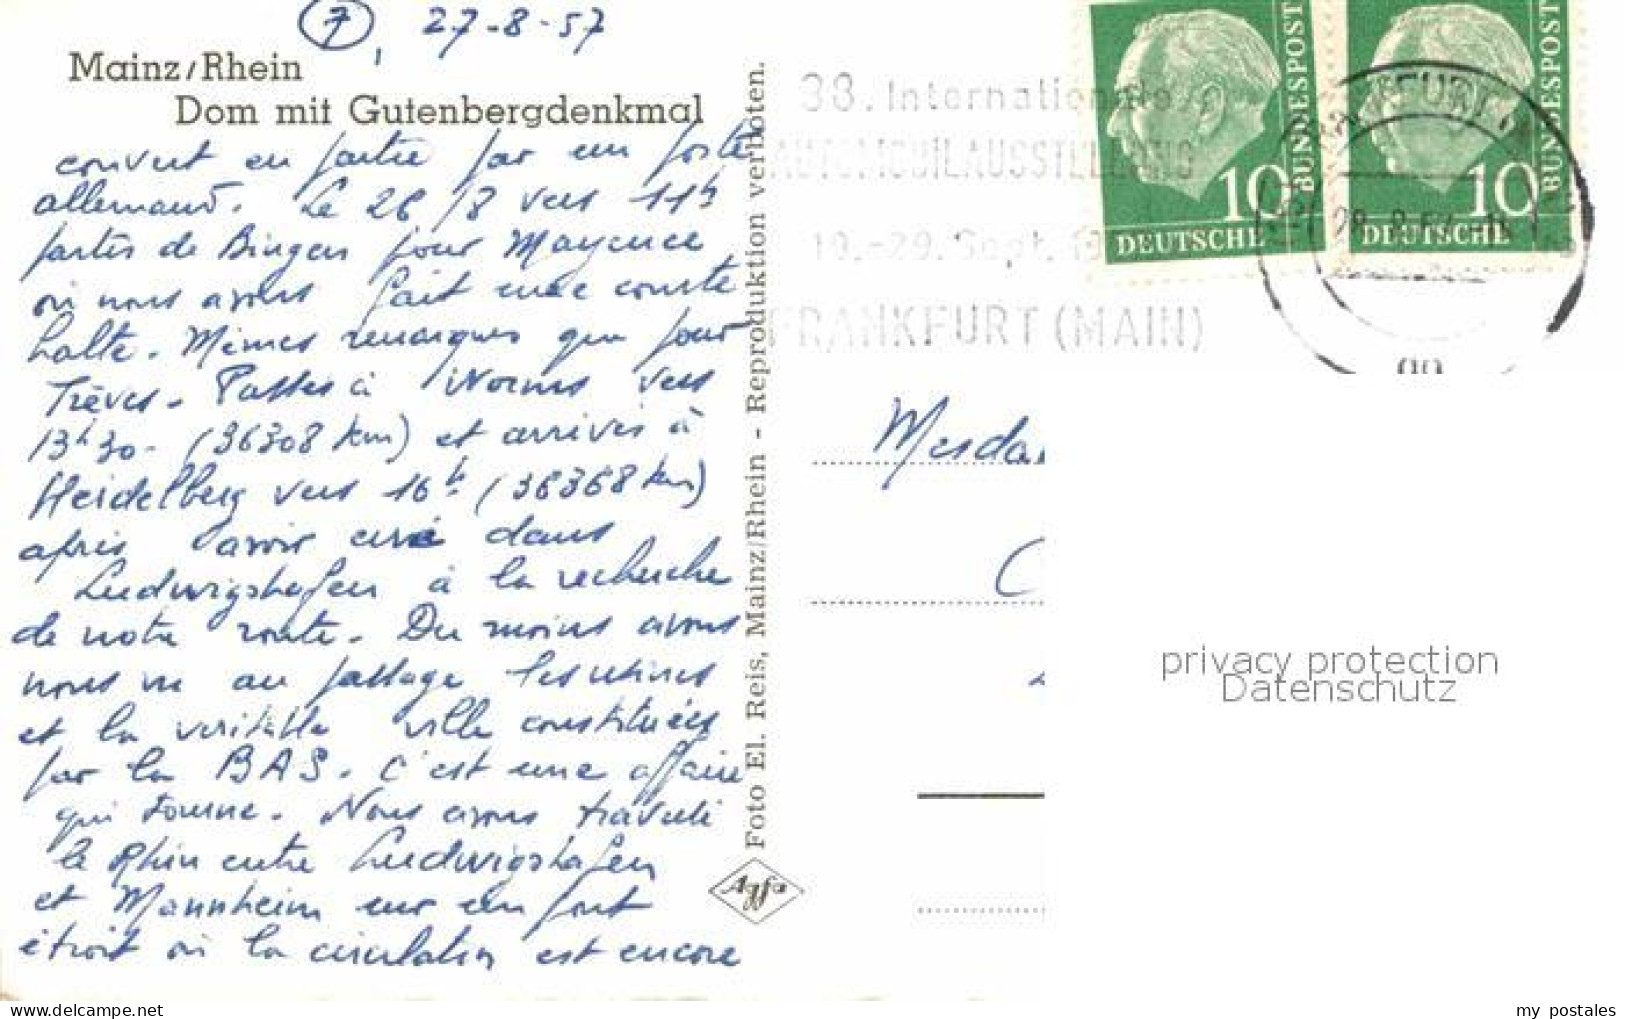 7, 27-8-57
Mainz/Rhein
Dom mit Gutenbergdenkmal
couvert en partie par un poste
allemand. Le 26/8 vers 11h
partis de Bingen pour Mayence
où nous avons fait une courte
halte. Mêmes remarques que pour
Trèves. Passés à Worms vers
13h30 - (36308 km) et arrivés à
Heidelberg vers 16h (36368 km)
après avoir erré dans
Ludwigshafen à la recherche
de notre route. Du moins avons
nous vu au passage les usines
et la véritable ville constituées
par la BAS. C'est une affaire
qui tourne. Nous avons traversé
le Rhin entre Ludwigshafen
et Mannheim sur un pont
étroit où la circulation est encore
Foto El. Reis, Mainz/Rhein - Reproduktion verboten.
Agfa
38. Internationale
AUTOMOBILAUSSTELLUNG
19.-29. Sept. 19
FRANKFURT (MAIN)
10
DEUTSCHE
BUNDESPOST
10
DEUTSCHE
BUNDESPOST
Mesda
privacy protection
Datenschutz
my postales